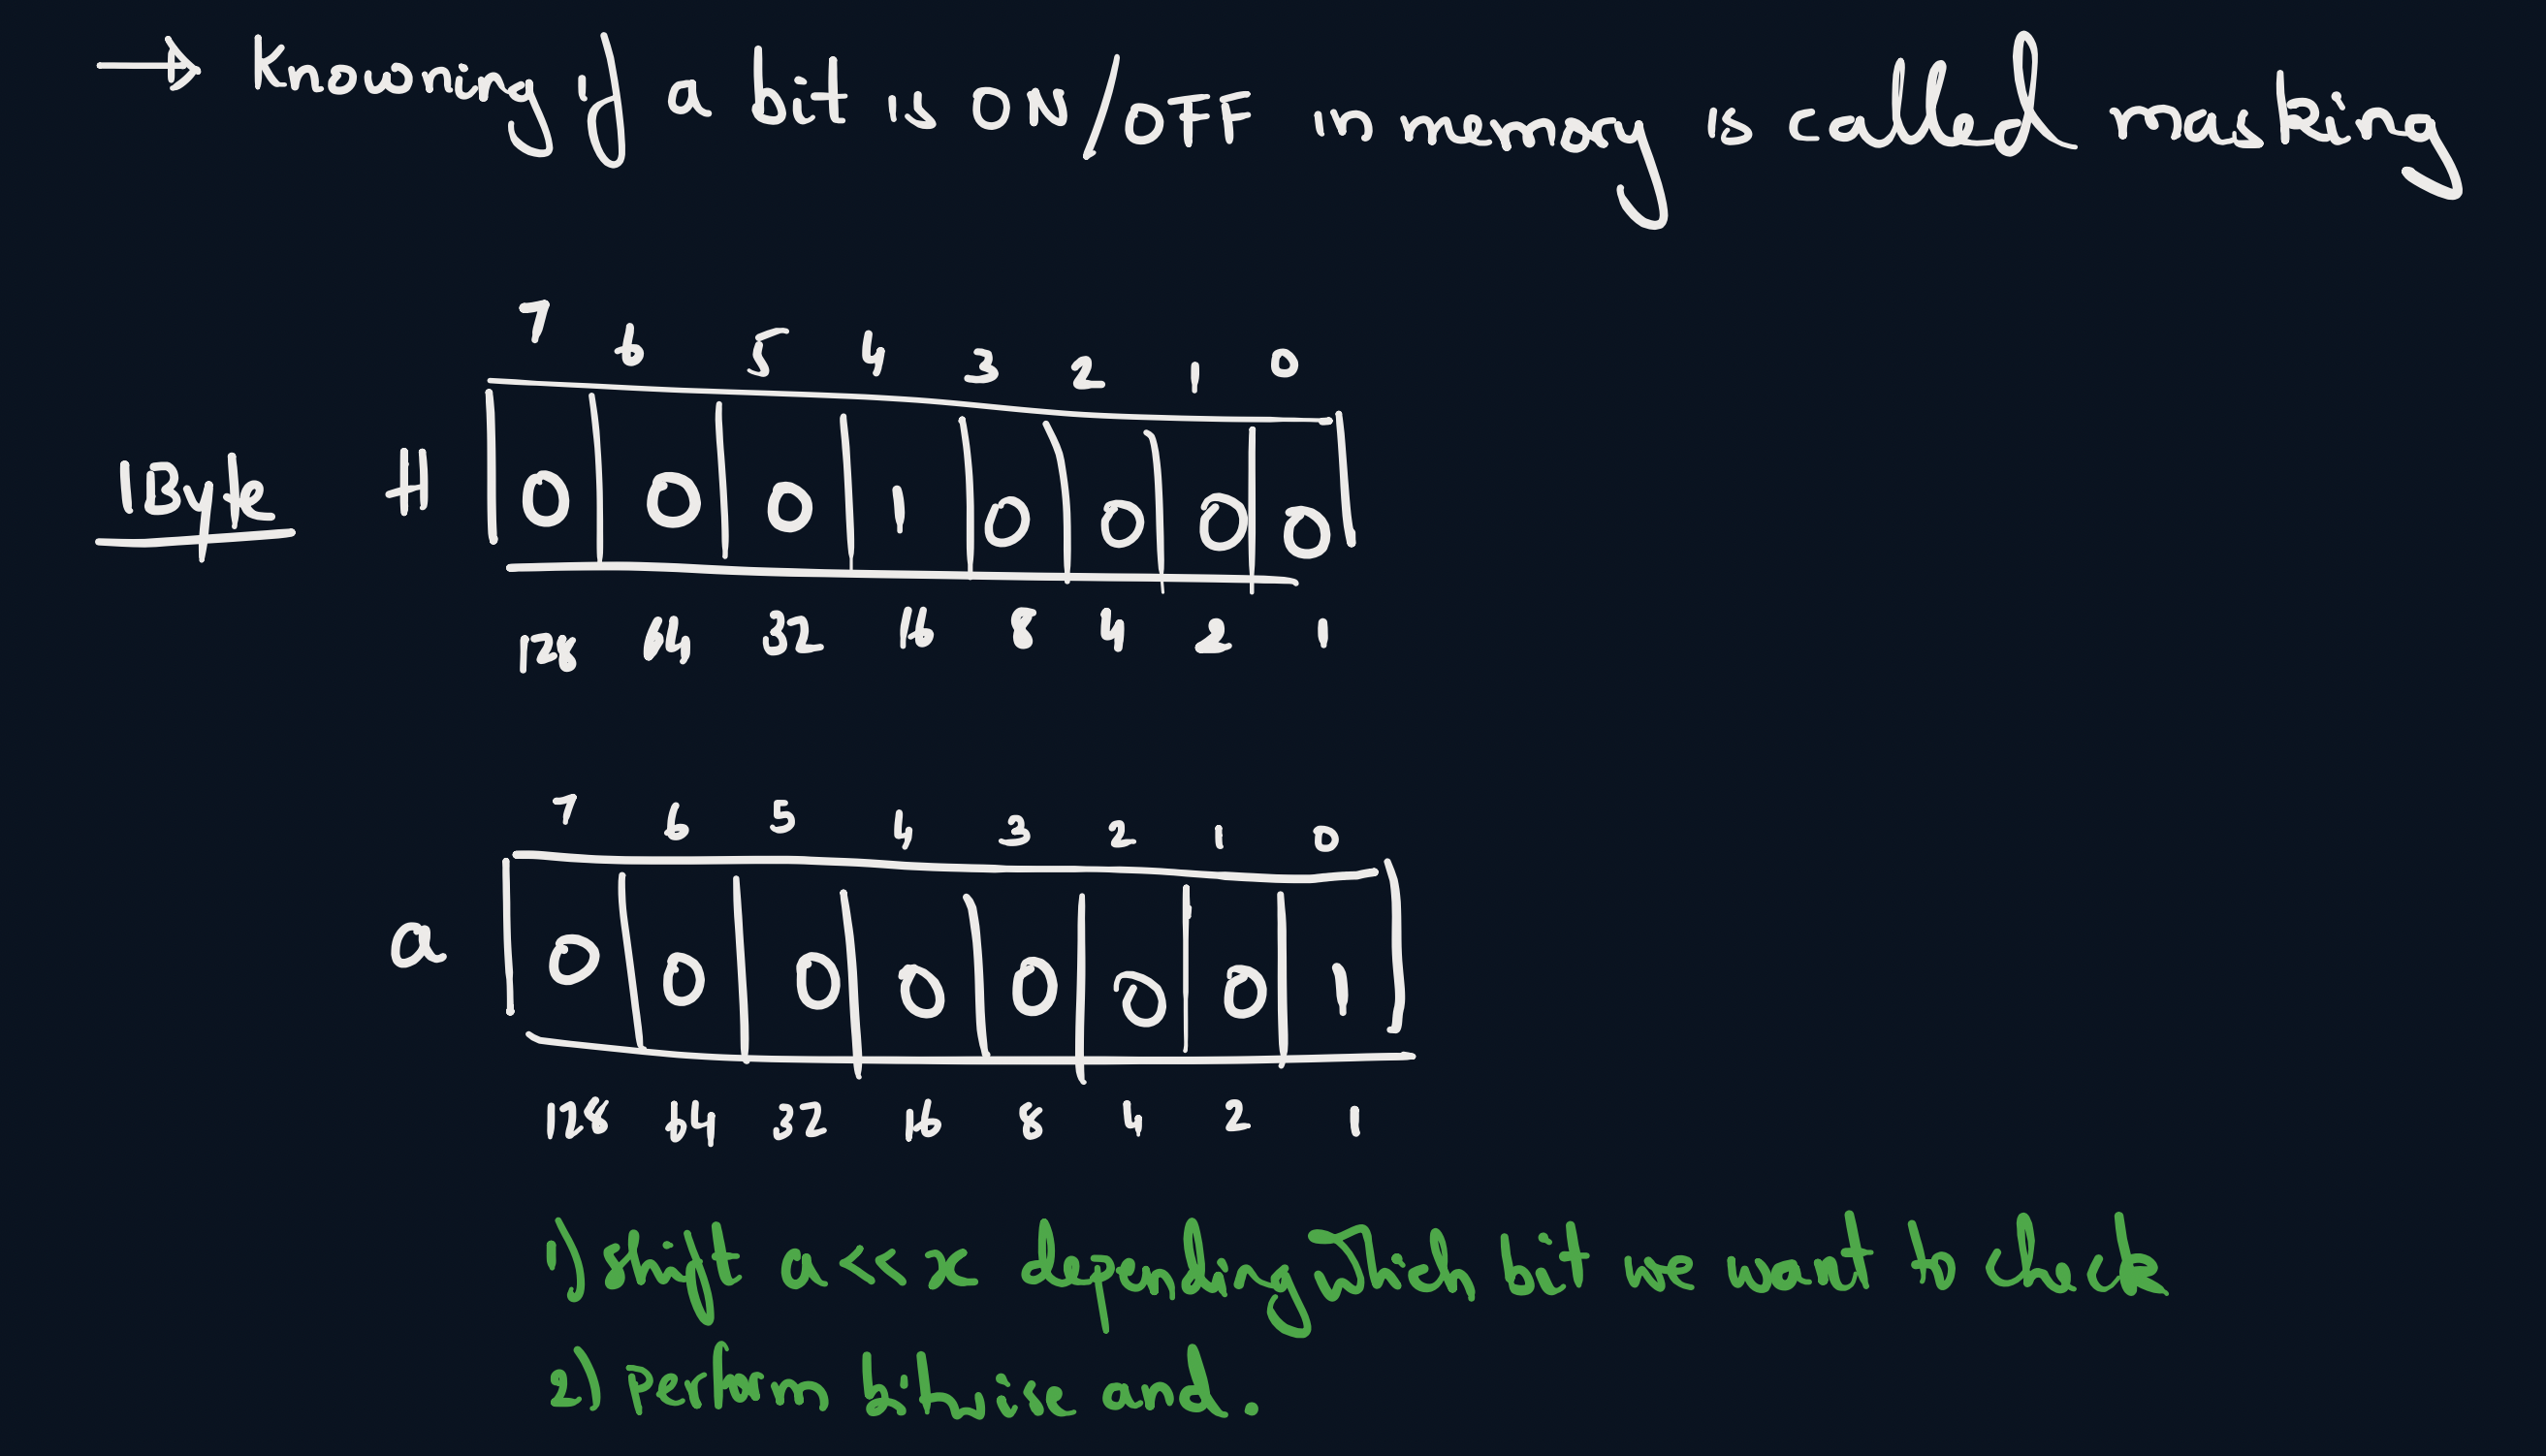 → Knowning if a bit is ON/OFF in memory is called masking
7 6 5 4 3 2 1 0
1Byte H 0 0 0 1 0 0 0 0
128 64 32 16 8 4 2 1
7 6 5 4 3 2 1 0
a 0 0 0 0 0 0 0 1
128 64 32 16 8 4 2 1
1) shift a << x depending which bit we want to check
2) Perform bitwise and.